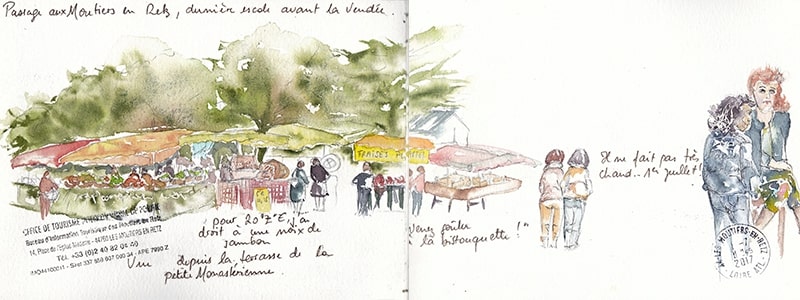 Passage aux Moutiers en Retz, dernière escale avant la Vendée.
FRAISES
Il ne fait pas très
chaud... 1er juillet !
OFFICE DE TOURISME
Bureau d'Information Touristique des Moutiers-en-Retz
14, Place de l'Eglise Madame - 44760 LES MOUTIERS EN RETZ
Tél. +33 (0)2 40 82
pour 20 7 €, j'ai
droit à une noix de
jambon
Venez goûter
à la bistouquette !"
Vue depuis la terrasse de la
petite Monastérienne.
LES MOUTIERS-EN-RETZ
2017
LOIRE ATL.